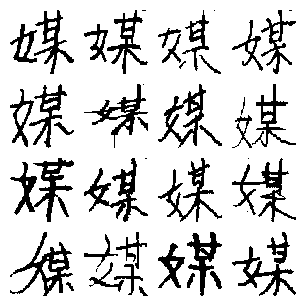 媒媒媒媒
媒媒媒媒
媒媒媒媒
媒媒媒媒